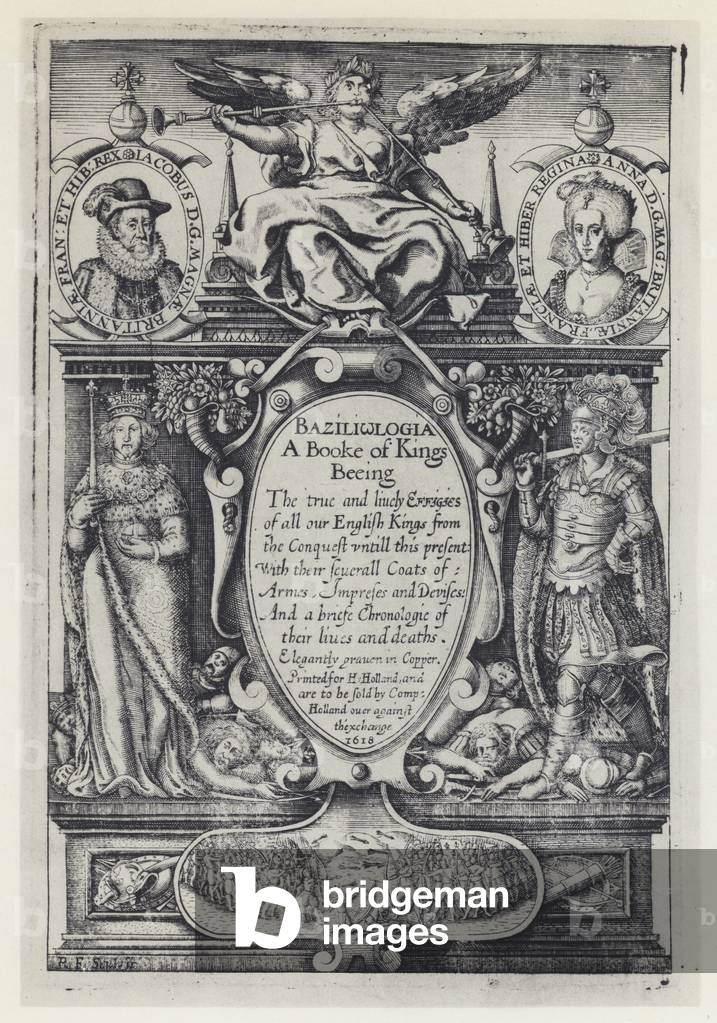 IACOBUS D:G: MAGNÆ BRITANNIÆ FRAN: ET HIB: REX
ANNA D.G. MAG: BRITANNIÆ, FRANCIÆ ET HIBER REGINA
BAZILIωLOGIA
A Booke of Kings
Beeing
The true and liuely EFFIGIES
of all our English Kings from
the Conquest vntill this present:
With their seuerall Coats of:
Armes, Impreses and Deuises:
And a briefe Chronologie of
their liues and deaths.
Elegantly grauen in Copper.
Printed for H: Holland, and
are to be sold by Comp:
Holland ouer against
thexchange
1618
R. E. Sculp
bridgeman
images